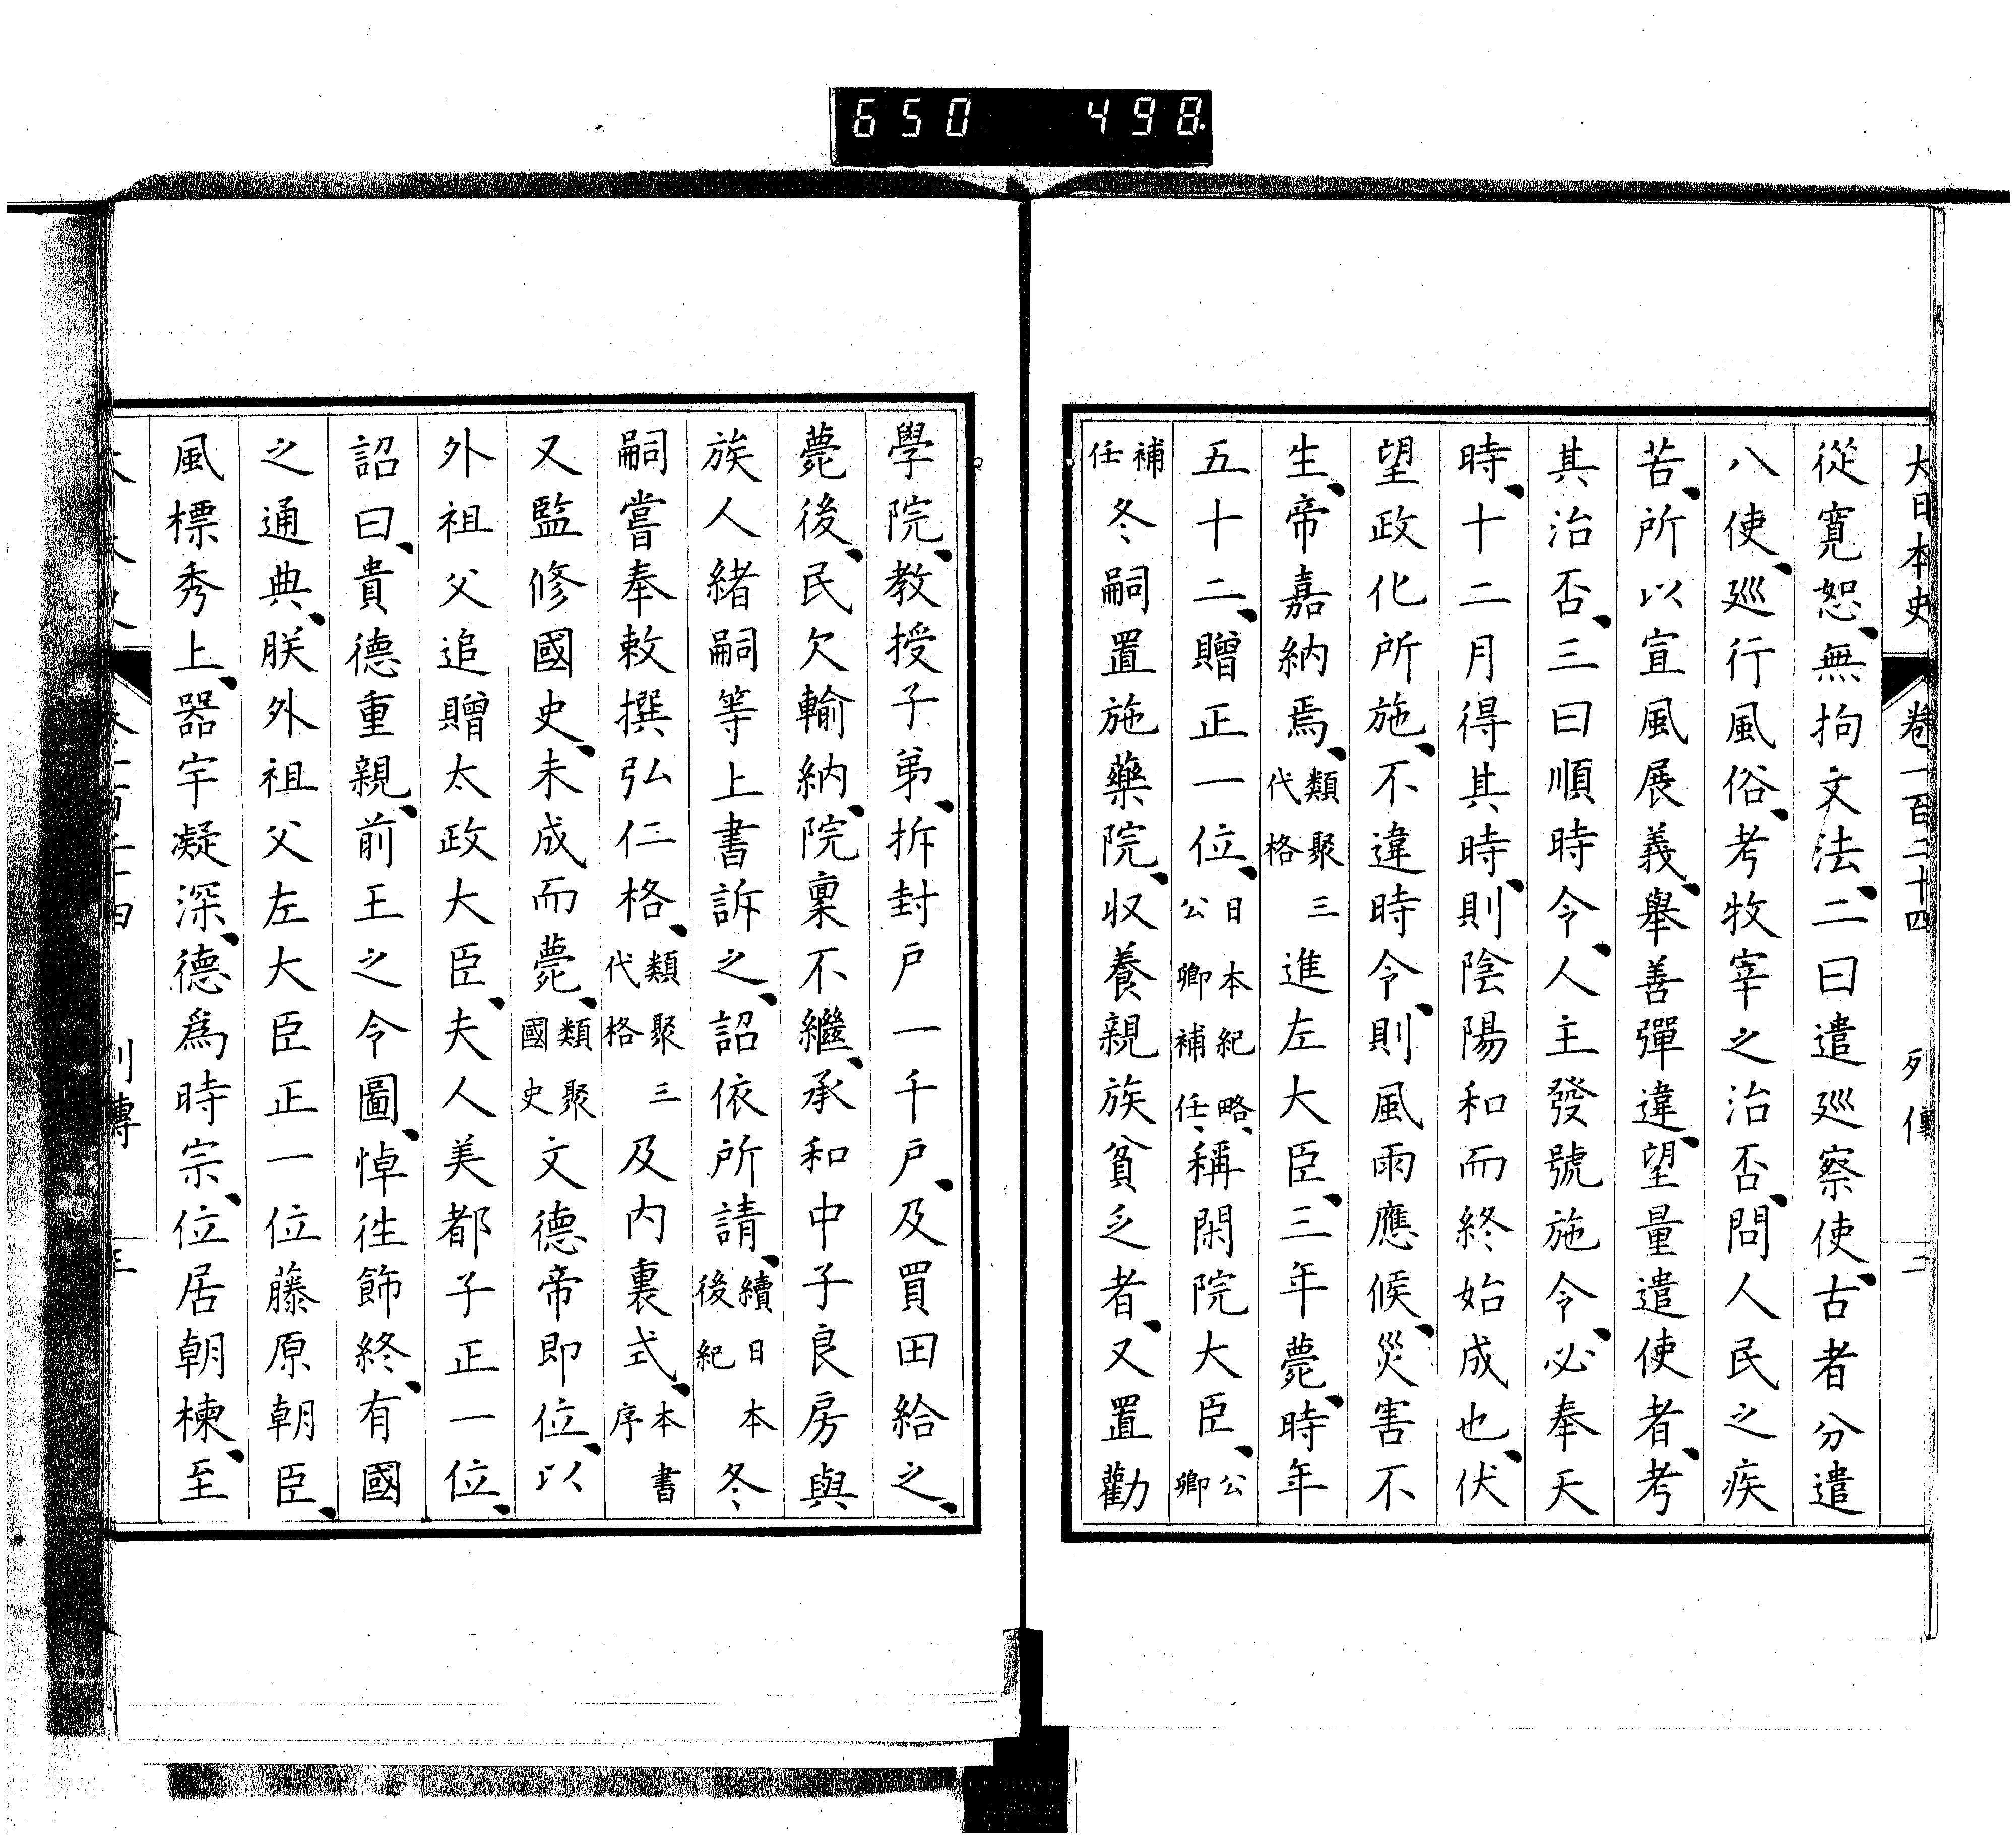 650 498
大日本史 卷一百二十四 列傳 二
從寬恕、無拘文法、二曰遣巡察使、古者分遣
八使、巡行風俗、考牧宰之治否、問人民之疾
苦、所以宣風展義、舉善彈違、望量遣使者、考
其治否、三曰順時令、人主發號施令、必奉天
時、十二月得其時、則陰陽和而終始成也、伏
望政化所施、不違時令、則風雨應候、災害不
生、帝嘉納焉、類聚三代格 進左大臣、三年薨、時年
五十二、贈正一位、日本紀略、公卿補任、稱閑院大臣、公卿
補任 冬嗣置施藥院、收養親族貧乏者、又置勸
學院、教授子弟、拆封戶一千戶、及買田給之、
薨後、民欠輸納、院稟不繼、承和中子良房與
族人緒嗣等上書訴之、詔依所請、續日本後紀 冬
嗣嘗奉敕撰弘仁格、類聚三代格 及內裏式、本書序
又監修國史、未成而薨、類聚國史 文德帝即位、以
外祖父追贈太政大臣、夫人美都子正一位、
詔曰、貴德重親、前王之令圖、悼往飾終、有國
之通典、朕外祖父左大臣正一位藤原朝臣、
風標秀上、器宇凝深、德爲時宗、位居朝棟、至